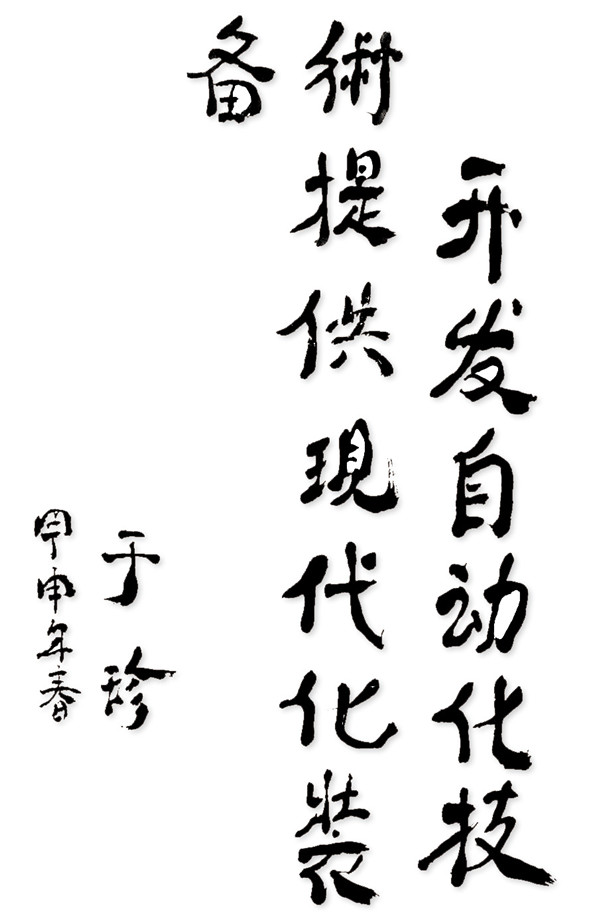 开发自动化技
術提供現代化装
备
于珍
甲申年春